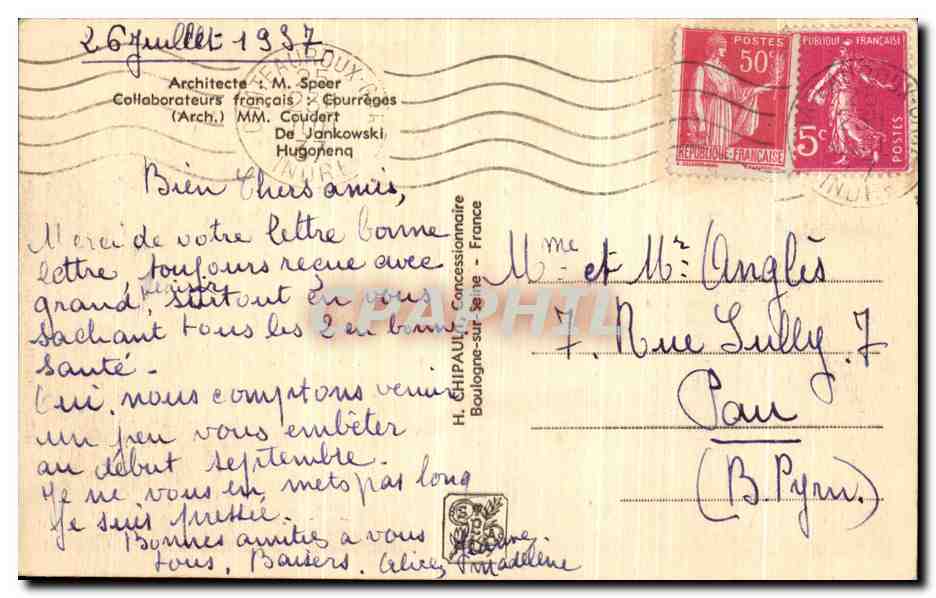 26 Juillet 1937
Architecte : M. Speer
Collaborateurs français : Courrèges
(Arch.) MM. Coudert
De Jankowski
Hugonenq
Bien Chers amis,
Merci de votre lettre bonne
lettre, toujours reçue avec
plaisir
grand, surtout en vous
sachant tous les 2 en bonne
santé.
Oui, nous comptons venir
un peu vous embêter
au début septembre.
Je ne vous en mets pas long
je suis pressée.
Bonnes amitiés à vous
tous. Baisers. Alice,
Madeleine
H. CHIPAULT, Concessionnaire
Boulogne-sur-Seine - France
CPAPHIL
Mme et Mr Anglès
7. Rue Sully. 7
Pau
(B. Pyrn.)
POSTES
50c
REPUBLIQUE-FRANÇAISE
REPUBLIQUE FRANÇAISE
5c
POSTES
CHATEAUROUX
INDRE
SPA